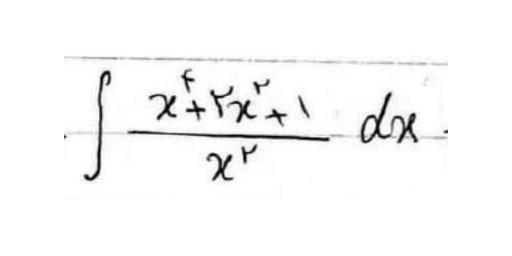 ∫ (x^۴+۲x^۲+۱)/(x^۲) dx